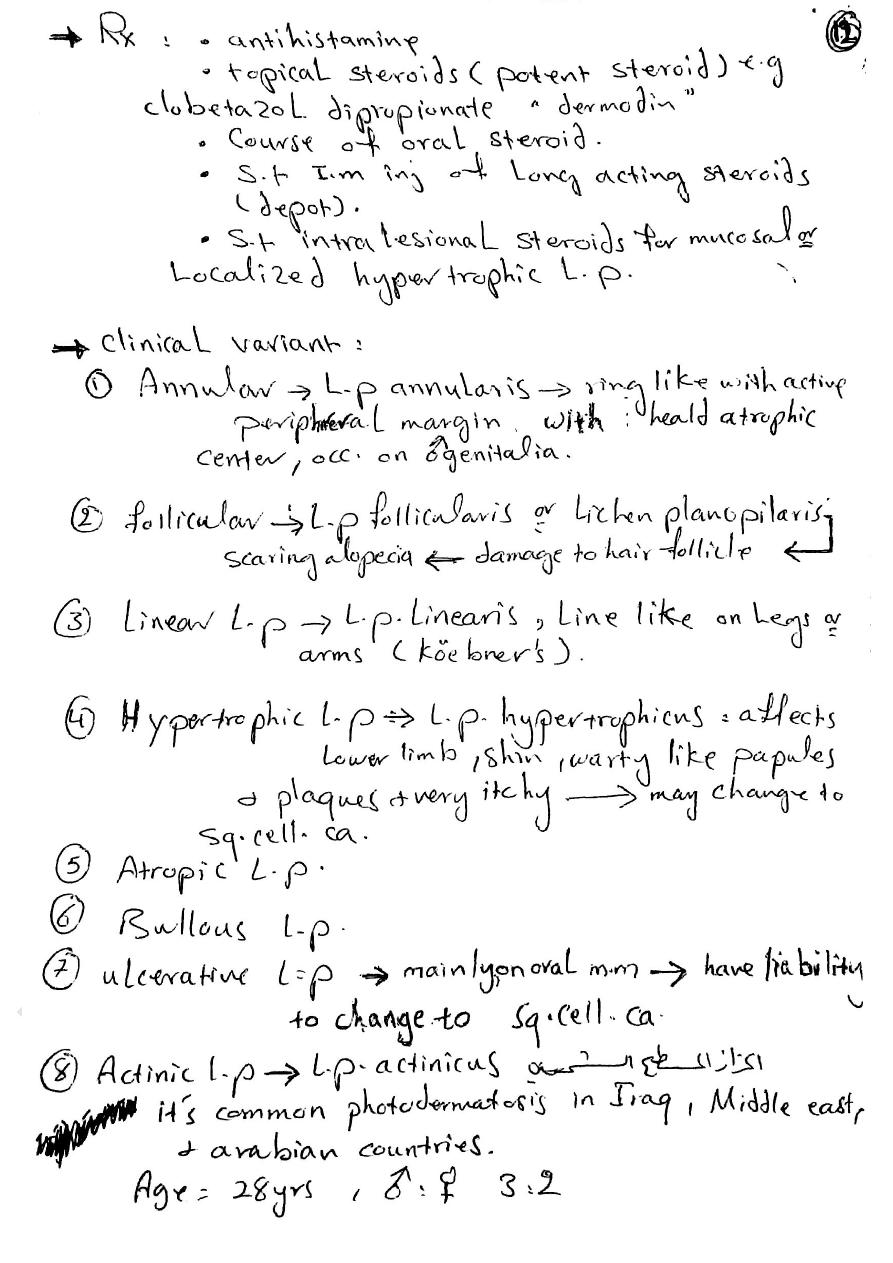 12
→ Rx : • antihistamine
• topical steroids (potent steroid) e.g
clobetazol dipropionate "dermodin"
• Course of oral steroid.
• S.t I.m inj of Long acting steroids
(depot).
• S.t intralesional steroids for mucosal or
Localized hypertrophic L.p.
→ Clinical variant :
① Annular → L.p annularis → ring like with active
periphreral margin with heald atrophic
center, occ. on ♂genitalia.
② follicular → L.p follicularis or Lichen planopilaris
scaring alopecia ← damage to hair follicle ←
③ Linear L.p → L.p. Linearis, Line like on Legs or
arms (köebner's).
④ Hypertrophic L.p ⇒ L.p. hypertrophicus : affects
Lower limb, shin, warty like papules
+ plaques + very itchy → may change to
sq.cell. ca.
⑤ Atropic L.p.
⑥ Bullous L.p.
⑦ ulcerative L.p → mainly on oral m.m → have liability
to change to sq.cell.ca.
⑧ Actinic L.p → L.p. actinicus
it's common photodermatosis in Iraq, Middle east,
+ arabian countries.
Age = 28yrs , ♂:♀ 3:2